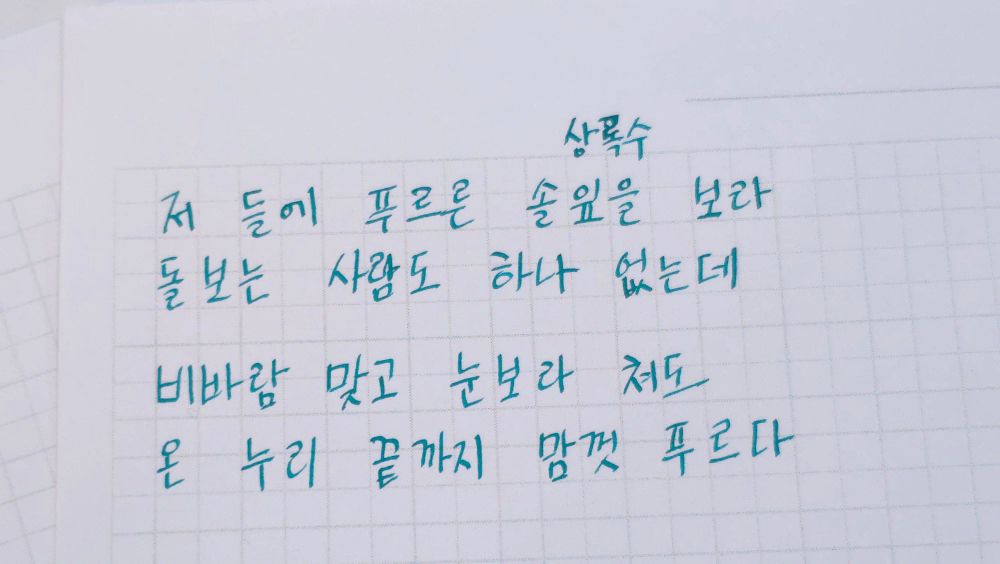 상록수
저 들에 푸르른 솔잎을 보라
돌보는 사람도 하나 없는데
비바람 맞고 눈보라 쳐도
온 누리 끝까지 맘껏 푸르다